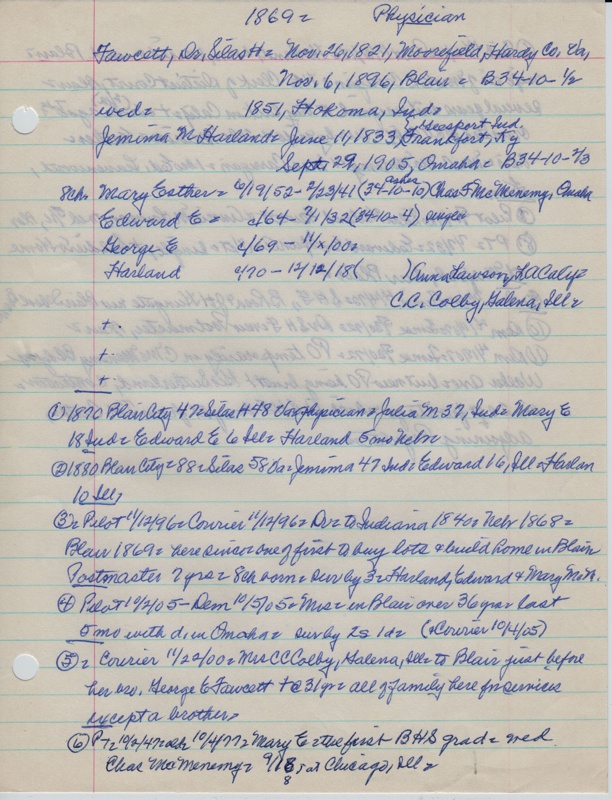 1869= Physician
Fawcett, Dr, Silas H= Nov. 26, 1821, Moorefield, Hardy Co, Va,
Nov. 6, 1896, Blair B34-10-1/2
wed= 1851, Kokoma, Ind=
Jemima M Harland= June 11, 1833, Geesport Ind, Frankfort, Ky
Sept 29, 1905, Omaha= B34-10-2/3
8ch= Mary Esther= 6/19/52-2/23/41 (34-10-10) ashes Chas F McMenemy, Omaha
Edward E= c/64- 7/1/32 (34-10-4) single
George E c/69- 11/x/00=
Harland c/70- 12/12/18 ( ) Anna Lawson, LA Caly=
C.C. Colby, Galena, Ill=
+.
+.
+
① 1870 Blair City 47= Silas H 48 Va= physician= Julia M 37, Ind= Mary E
18 Ind= Edward E 6 Ill= Harland 5mo Nebr=
② 1880 Blair City= 88= Silas 58 Va= Jemima 47 Ind= Edward 16, Ill= Harlan
10 Ill,
③= Pilot 11/12/96= Courier 11/12/96= Dr= to Indiana 1840= Nebr 1868=
Blair 1869= here since= one of first to buy lots & build home in Blair
Postmaster 7 yrs= 8ch born= sur by 3= Harland, Edward & Mary McM.
④ Pilot 10/2/05- Dem 10/5/05= Mrs= in Blair over 36 yrs= last
5 mo with d, in Omaha= sur by 2s 1d= (=Courier 10/4/05)
⑤= Courier 11/22/00= Mrs CC Colby, Galena, Ill= to Blair just before
her bro, George E Fawcett + @ 31 yr= all of family here for services
except a brother=
⑥ PT= 10/2/47= 10/4/77= Mary E= the first BHS grad= wed
Chas McMenemy= 9/18 8 at Chicago, Ill=